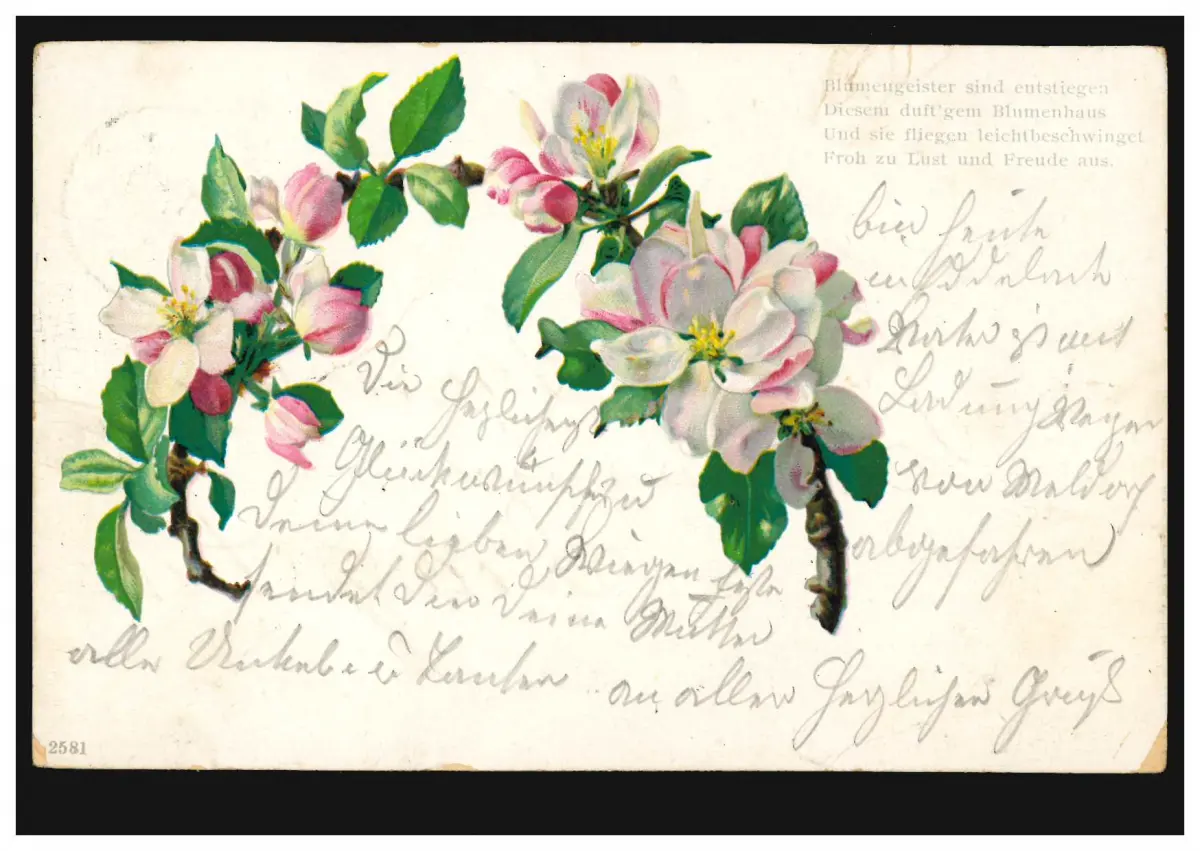 Blumengeister sind entstiegen
Diesem duft'gem Blumenhaus
Und sie fliegen leichtbeschwinget
Froh zu Lust und Freude aus.
bin heute
in
Vater ist mit
Ladung
von Meldorf
abgefahren
Die herzlichsten
Glückwünsche zu
Deinem lieben Wiegenfeste
sendet Dir Deine Mutter
alle Onkel u Tanten
an allen herzlichen Gruß
2581